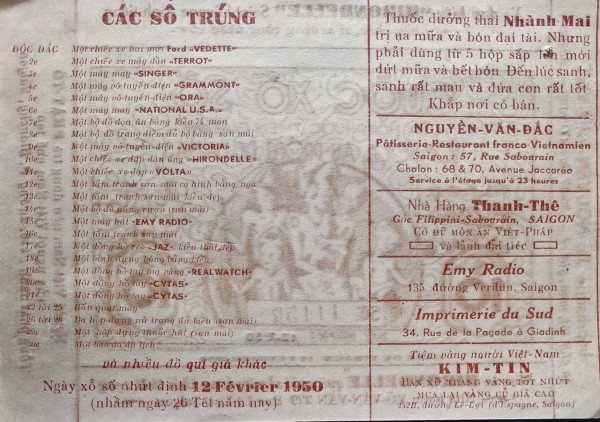 CÁC SỐ TRÚNG
ĐỘC ĐẮC Một chiếc xe hơi mới Ford «VEDETTE»
2e Một chiếc xe máy dầu «TERROT»
3e Một máy may «SINGER»
4e Một máy vô-tuyến-điện «GRAMMONT»
5e Một máy vô-tuyến-điện «ORA»
6e Một máy may «NATIONAL U.S.A.»
7e Một bộ đồ dọn ăn bằng kiểu 74 món
8e Một bộ đồ trang điểm đủ bộ bằng sơn mài
9e Một máy vô-tuyến-điện «VICTORIA»
10e Một chiếc xe đạp đàn ông «HIRONDELLE»
11e Một chiếc xe đạp «VOLTA»
12e Một tấm tranh sơn mài có hình bằng ngà
13e Một tấm tranh sơn mài kiểu đẹp
14e Một bộ đồ nấu rượu sơn mài
15e Một máy hát «EMY RADIO»
16e Một tấm tranh sơn mài
17e Một đồng hồ «JAZ» kiểu thật đẹp
18e Một bình đựng bông bằng kiểu
19e Một đồng hồ tay mạ vàng «REALWATCH»
20e Một đồng hồ tay «CYTAS»
21e Một đồng hồ tay «CYTAS»
22 tới 25 Bốn quạt máy
26 tới 28 Ba hộp đựng nữ trang đủ kiểu (sơn mài)
Một hộp đựng thuốc hút (sơn mài)
Một bàn da du lịch
và nhiều đồ quí giá khác
Ngày xổ số nhứt định 12 Février 1950
(nhằm ngày 26 Tết năm nay)
Thuốc dưỡng thai Nhành Mai
trị ụa mữa và bón đại tài. Nhưng
phải dùng từ 5 hộp sấp lên mới
dứt mữa và hết bón. Đến lúc sanh,
sanh rất mau và đứa con rất tốt
Khắp nơi có bán.
NGUYỄN-VĂN-ĐẮC
Pâtisserie-Restaurant franco-Vietnamien
Saigon : 57, Rue Sabourain
Cholon : 68 & 70, Avenue Jaccaréo
Service à l'étage jusqu'à 23 heures
Nhà Hàng Thanh-Thế
Góc Filippini-Sabourain, SAIGON
CÓ ĐỦ MÓN ĂN VIỆT-PHÁP
và lãnh đãi tiệc
Emy Radio
135 đường Verdun, Saigon
Imprimerie du Sud
34, Rue de la Pagode à Giadinh
Tiệm vàng người Việt-Nam
KIM-TÍN
BÁN XỨ THOÀNG VÀNG TỐT NHỨT
MUA LẠI VÀNG CŨ GIÁ CAO
đường Lê-Lợi (d'Espagne, Saigon)